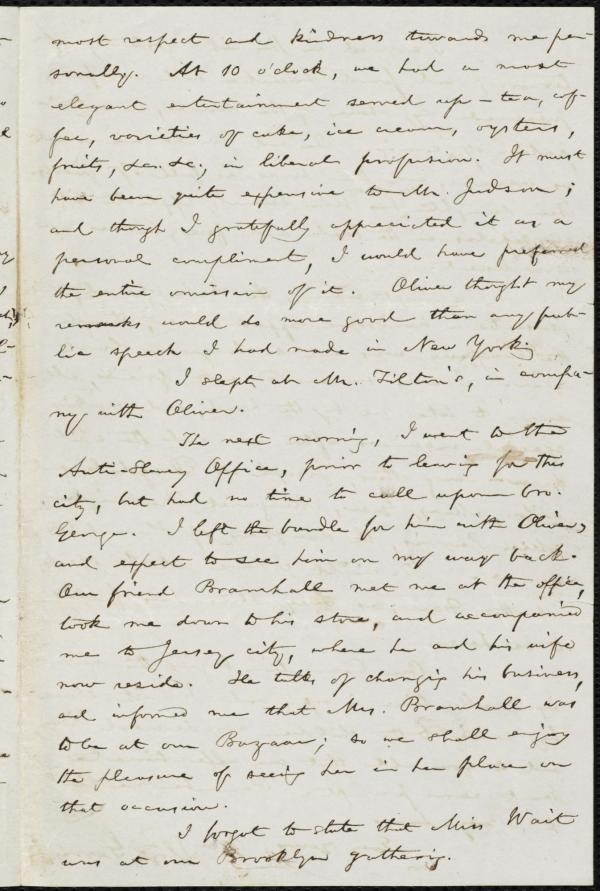 most respect and kindness towards me per-
sonally. At 10 o'clock, we had a most
elegant entertainment served up – tea, cof-
fee, varieties of cake, ice cream, oysters,
fruits, &c. &c., in liberal profusion. It must
have been quite expensive to Mr. Judson;
and though I gratefully appreciated it as a
personal compliment, I would have preferred
the entire omission of it. Oliver thought my
remarks would do more good than any pub-
lic speech I had made in New York.
I slept at Mr. Tilton's, in compa-
ny with Oliver.
The next morning, I went to the
Anti-Slavery Office, prior to leaving for this
city, but had no time to call upon bro.
George. I left the bundle for him with Oliver,
and expect to see him on my way back.
Our friend Bramhall met me at the office,
took me down to his store, and accompanied
me to Jersey city, where he and his wife
now reside. He talks of changing his business,
and informed me that Mrs. Bramhall was
to be at our Bazaar; so we shall enjoy
the pleasure of seeing her in her place on
that occasion.
I forgot to state that Miss Wait
was at our Brooklyn gathering.